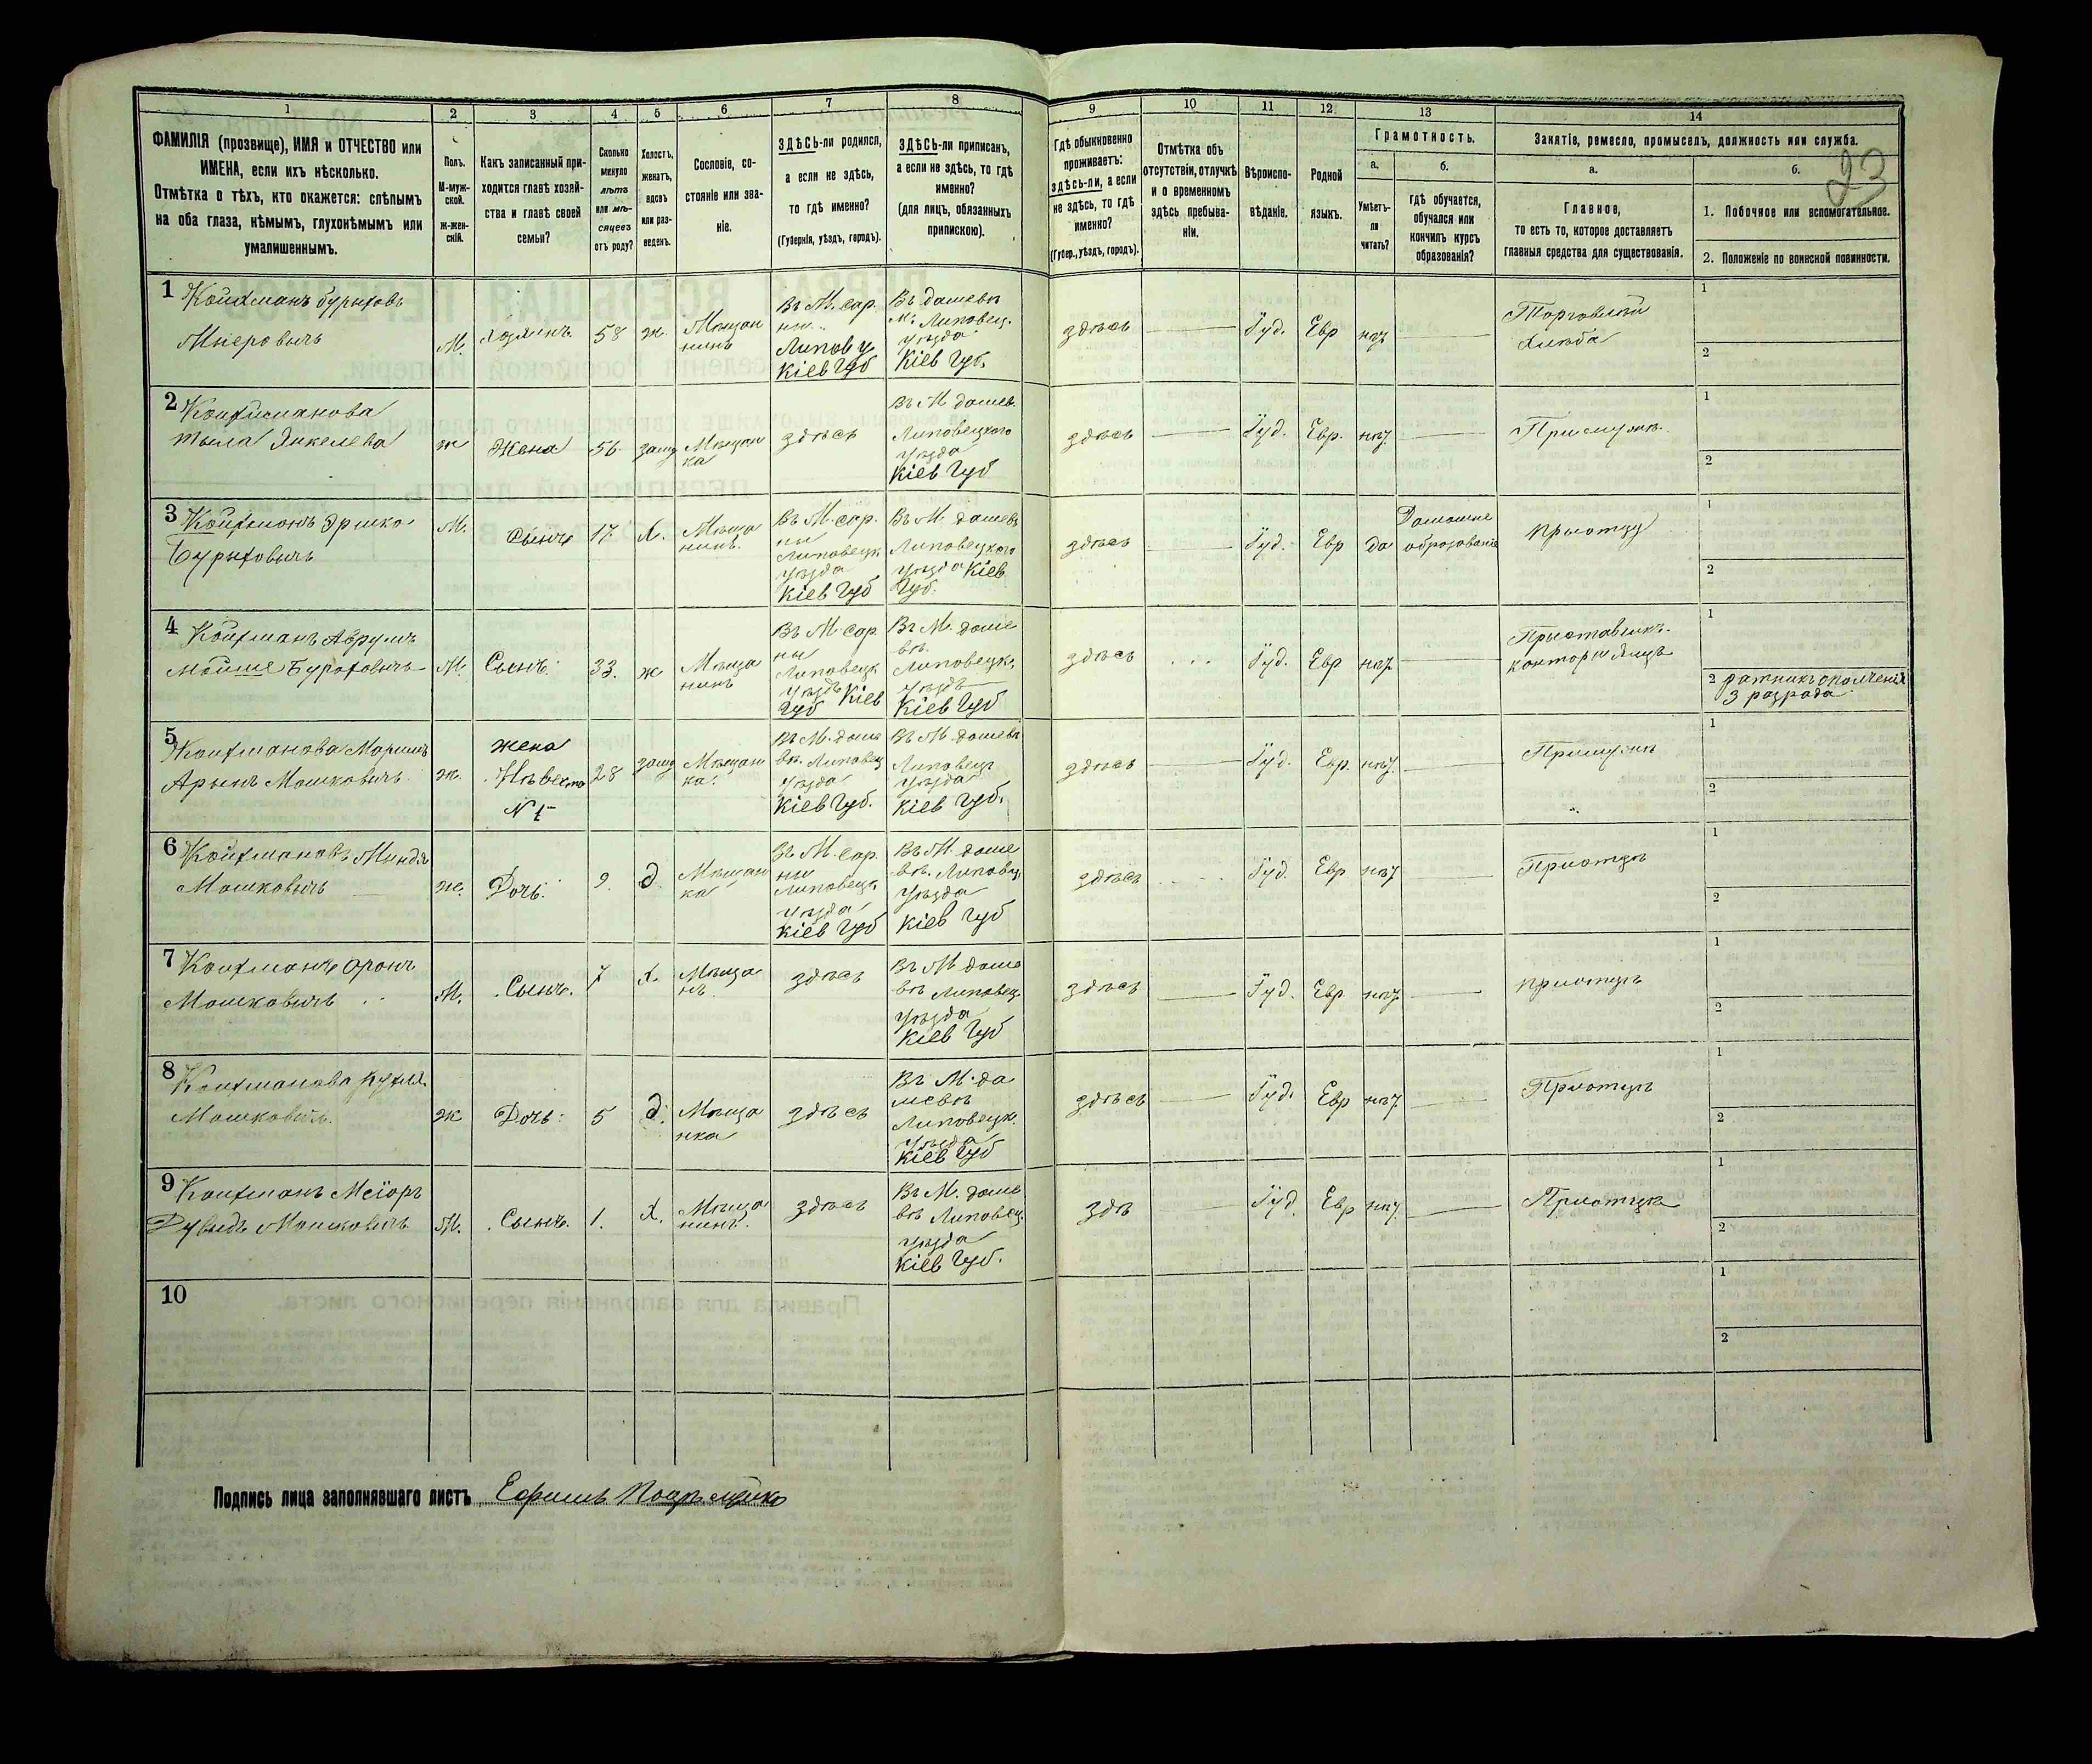 1
2
3
4
5
6
7
8
ФАМИЛІЯ (прозвище), ИМЯ и ОТЧЕСТВО или
ИМЕНА, если ихъ нѣсколько.
Отмѣтка о тѣхъ, кто окажется: слѣпымъ
на оба глаза, нѣмымъ, глухонѣмымъ или
умалишеннымъ.
Полъ.
М-муж-
ской.
ж-жен-
скій.
Какъ записанный при-
ходится главѣ хозяй-
ства и главѣ своей
семьи?
Сколько
минуло
лѣтъ
или мѣ-
сяцевъ
отъ роду?
Холостъ,
женатъ,
вдовъ
или раз-
веденъ.
Сословіе, со-
стояніе или зва-
ніе.
ЗДѢСЬ-ли родился,
а если не здѣсь,
то гдѣ именно?
(Губернія, уѣздъ, городъ).
ЗДѢСЬ-ли приписанъ,
а если не здѣсь, то гдѣ
именно?
(для лицъ, обязанныхъ
припискою).
9
10
11
12
13
14
Гдѣ обыкновенно
проживаетъ:
здѣсь-ли, а если
не здѣсь, то гдѣ
именно?
(Губер., уѣздъ, городъ).
Отмѣтка объ
отсутствіи, отлучкѣ
и о временномъ
здѣсь пребыва-
ніи.
Вѣроиспо-
вѣданіе.
Родной
языкъ.
Грамотность.
а.
Умѣетъ-
ли
читать?
б.
гдѣ обучается,
обучался или
кончилъ курсъ
образованія?
Занятіе, ремесло, промыселъ, должность или служба.
а.
Главное,
то есть то, которое доставляетъ
главныя средства для существованія.
б.
23
1. Побочное или вспомогательное.
2. Положеніе по воинской повинности.
1 Койфманъ Бурыховъ
М. Хозяинъ 58 ж. Мѣщан
нинъ
Въ М. Сар.
Липов у
Кіев Губ
Въ Дашевѣ
М. Липовец.
уѣзда
Кіев Губ.
здѣсь Іуд. Евр нѣт
Торговлей
хлѣба
1
2
2 Койфманова
Тыла Янкелева ж Жена 56 заму Мѣщан
ка
здѣсь
Въ М Дашев.
Липовецкого
уѣзда
Кіев Губ
здѣсь Іуд. Евр. нѣт
При мужѣ
1
2
3 Койфманъ Эршко
Бурыховичъ
М. Сынъ 17 Х. Мѣща
нинъ
Въ М. Сар.
ны
Липовецк
уѣзда
Кіев Губ
Въ М. Дашевѣ
Липовецкого
уѣзда Кіев
Губ.
здѣсь Іуд. Евр да
Домашне
образованіе
При отцу
1
2
4 Койфманъ Аврумъ
Мойше Бурыховичъ М. Сынъ 33. ж Мѣща
нинъ
Въ М. Сар
ны
Липовецк
уѣздъ Кіев
Губ
Въ М. Даше
вѣ
Липовецк.
уѣздъ
Кіев Губ
здѣсь Іуд. Евр нѣт
1
2 ратникъ ополченія
3 разряда
5 Койфманова
ж. Жена
Невѣста
28 заму Мѣщан
ка
Въ М. Даше
вѣ. Липовец
уѣзда
Кіев Губ.
Въ М. Дашевѣ
Липовецк
уѣзда
Кіев Губ.
здѣсь Іуд. Евр. нѣт
При мужѣ
1
2
6 Койфмановъ Миндя
Мошковичъ ж. Дочь. 9. д. Мѣщан
ка
Въ М. Сар.
ны
Липовецк.
уѣзда
Кіев Губ
Въ М. Даше
вѣ. Липовец
уѣзда
Кіев Губ
здѣсь Іуд. Евр нѣт
При отцѣ
1
2
7 Койфманъ Оронъ
Мошковичъ М. Сынъ. 7 Х. Мѣща
нъ
здѣсь
Въ М Даше
вѣ Липовец.
уѣзда
Кіев Губ
здѣсь Іуд. Евр нѣт
При отцѣ
1
2
8 Койфманова
Мошковичъ ж Дочь 5 д. Мѣща
нка
здѣсь
Въ М. Да
шевѣ
Липовецк.
уѣзда
Кіев Губ
здѣсь Іуд. Евр нѣт
При отцѣ
1
2
9 Койфманъ Меіоръ
Дувыдъ Мошковичъ М. Сынъ. 1. Х. Мѣща
нинъ.
здѣсь
Въ М. Даше
вѣ Липовец.
уѣзда
Кіев Губ.
здѣ Іуд. Евр нѣт
При отцѣ
1
2
10
1
2
Подпись лица заполнявшаго листъ Ефимъ